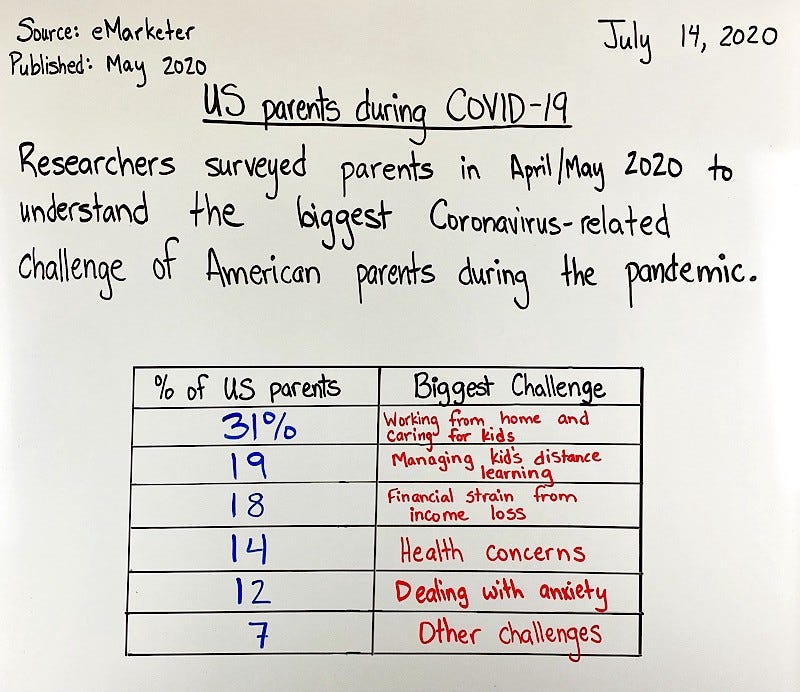 Source: eMarketer
Published: May 2020
July 14, 2020
US parents during COVID-19
Researchers surveyed parents in April/May 2020 to
understand the biggest Coronavirus-related
challenge of American parents during the pandemic.
% of US parents Biggest Challenge
31% Working from home and
caring for kids
19 Managing kid's distance
learning
18 Financial strain from
income loss
14 Health concerns
12 Dealing with anxiety
7 Other challenges